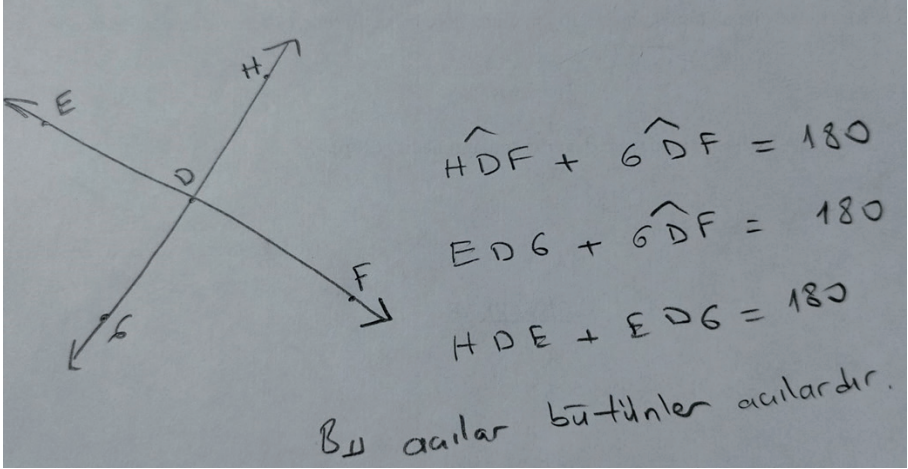 H
E
D
F
G
HDF + GDF = 180
EDG + GDF = 180
HDE + EDG = 180
Bu açılar bütünler açılardır.